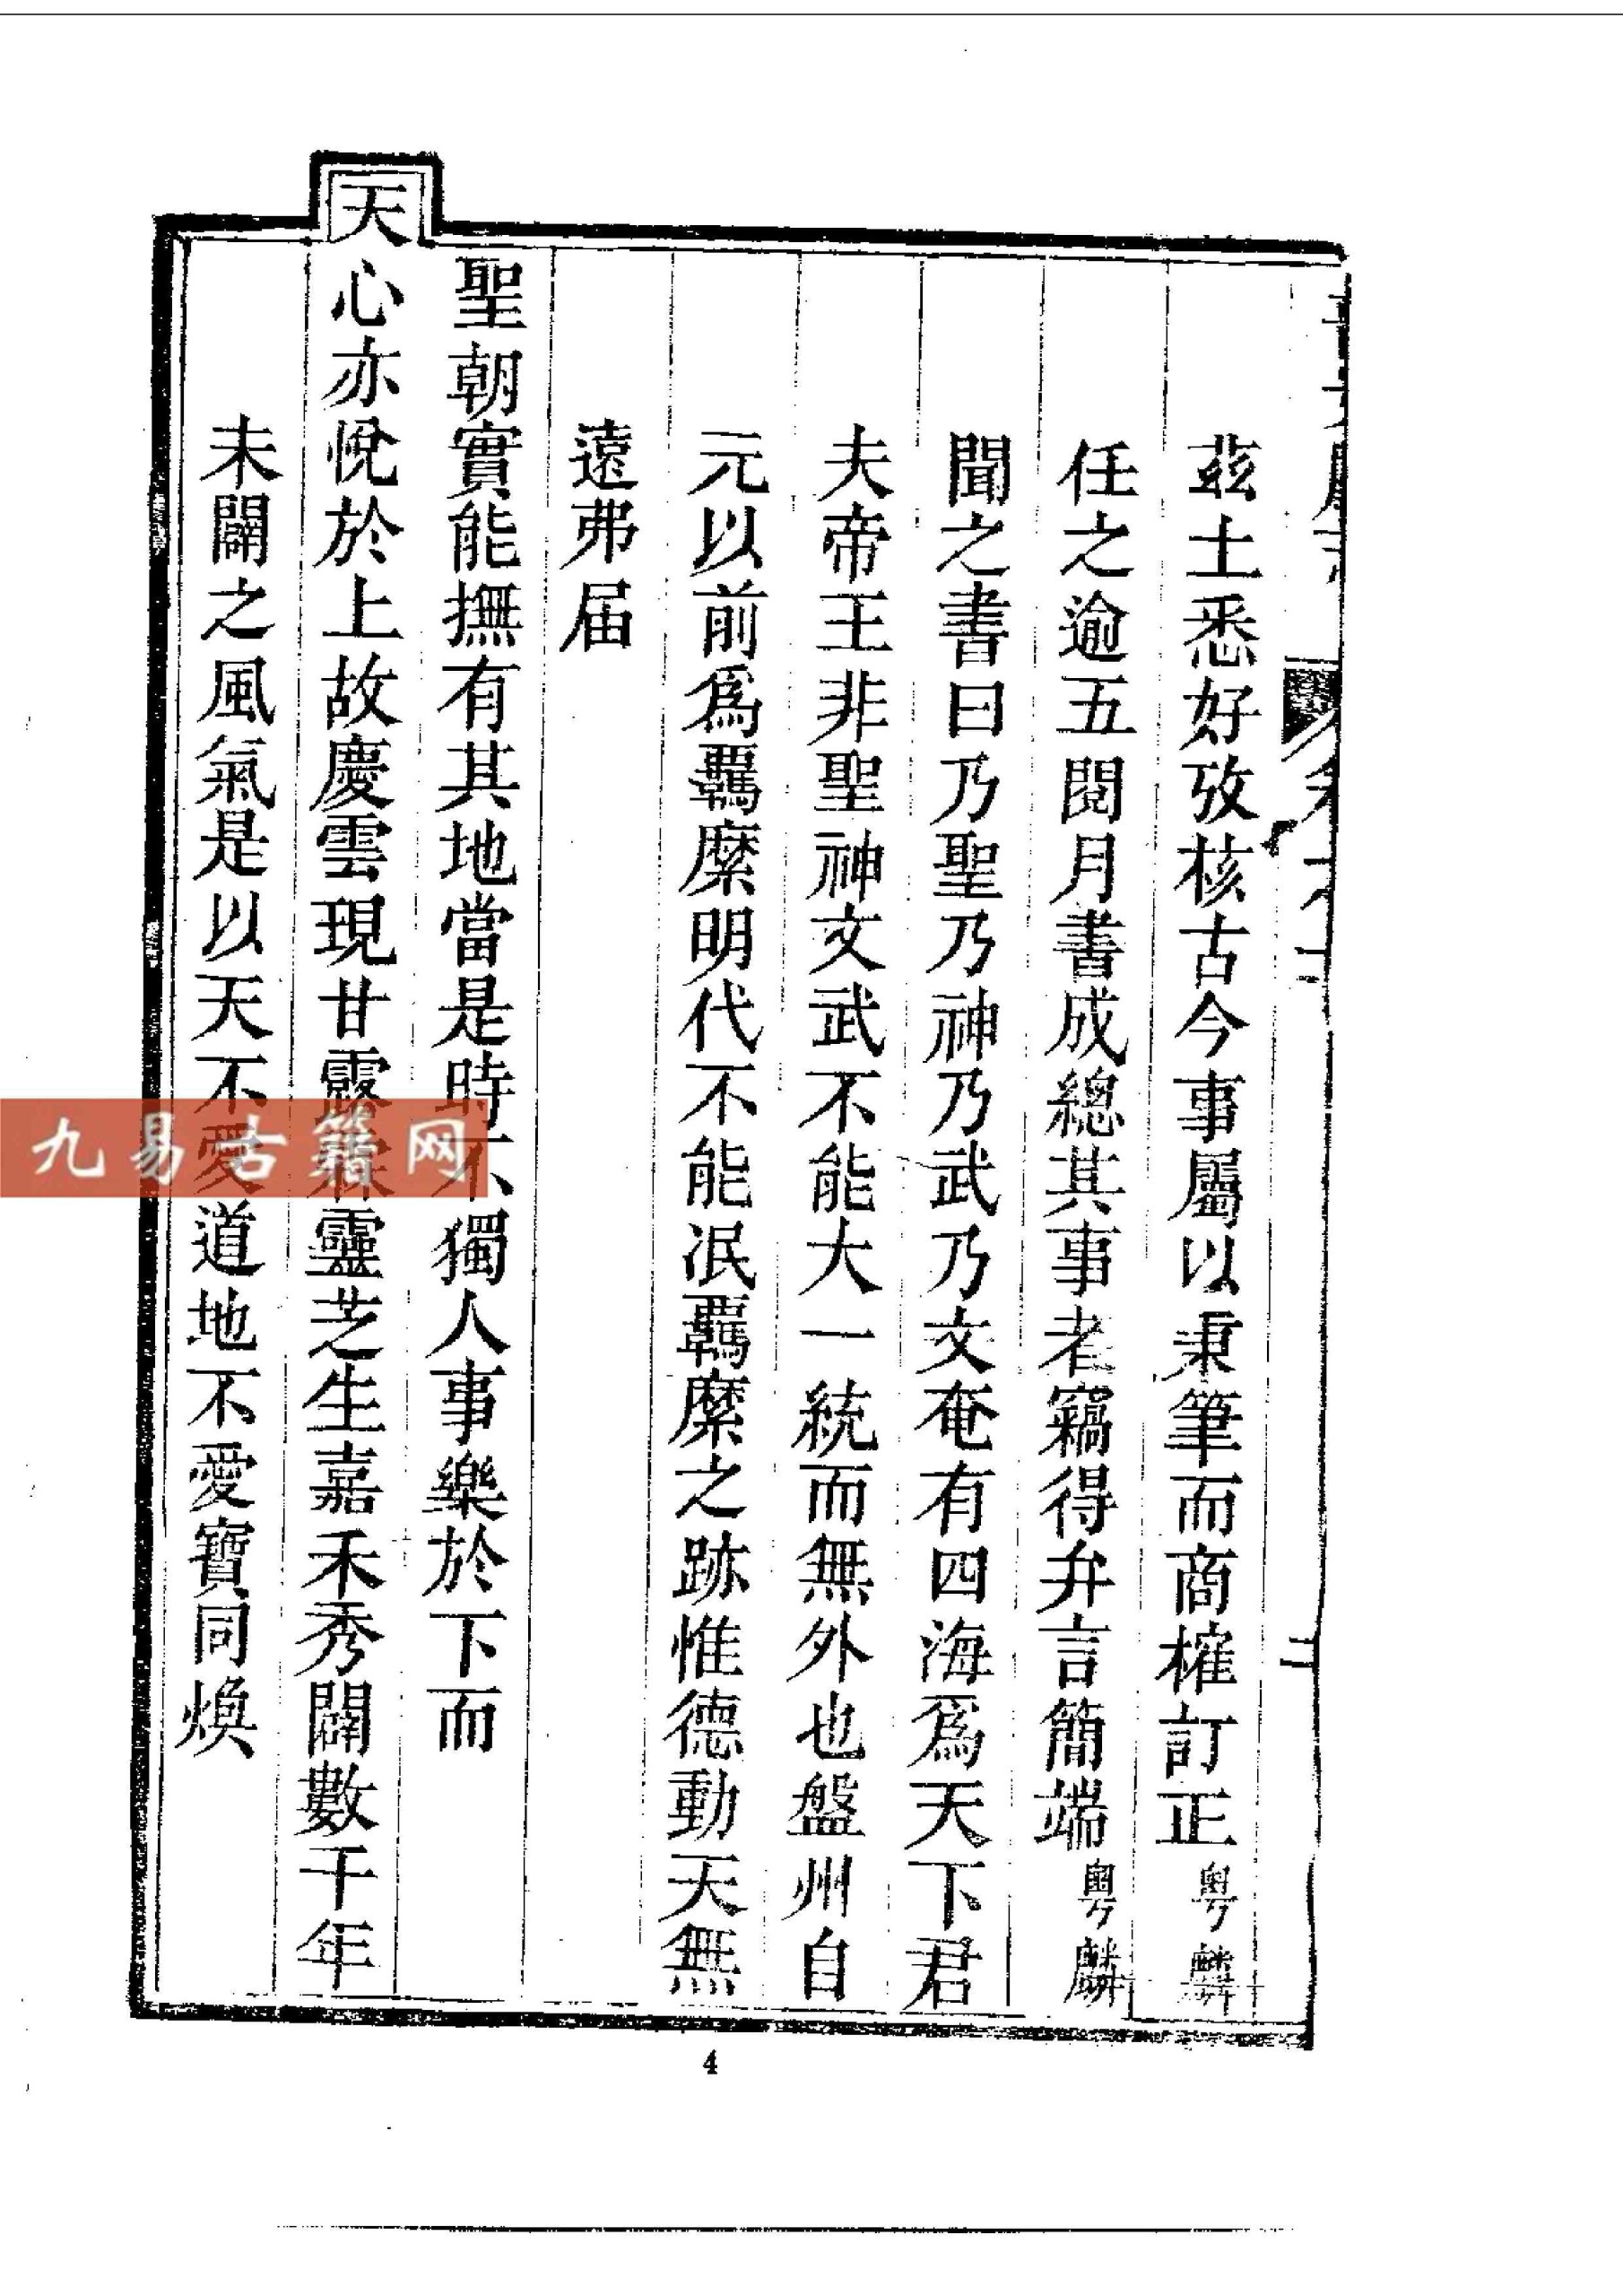 茲土悉好攷核古今事屬以秉筆而商榷訂正粤麟
任之逾五閱月書成總其事者竊得弁言簡端粤麟
聞之書曰乃聖乃神乃武乃文奄有四海爲天下君
夫帝王非聖神文武不能大一統而無外也盤州自
元以前爲羈縻明代不能泯羈縻之跡惟德動天無
遠弗届
聖朝實能撫有其地當是時不獨人事樂於下而
天心亦悅於上故慶雲現甘露霖靈芝生嘉禾秀闢數千年
未闢之風氣是以天不愛道地不愛寶同煥
二
九易古籍网
4